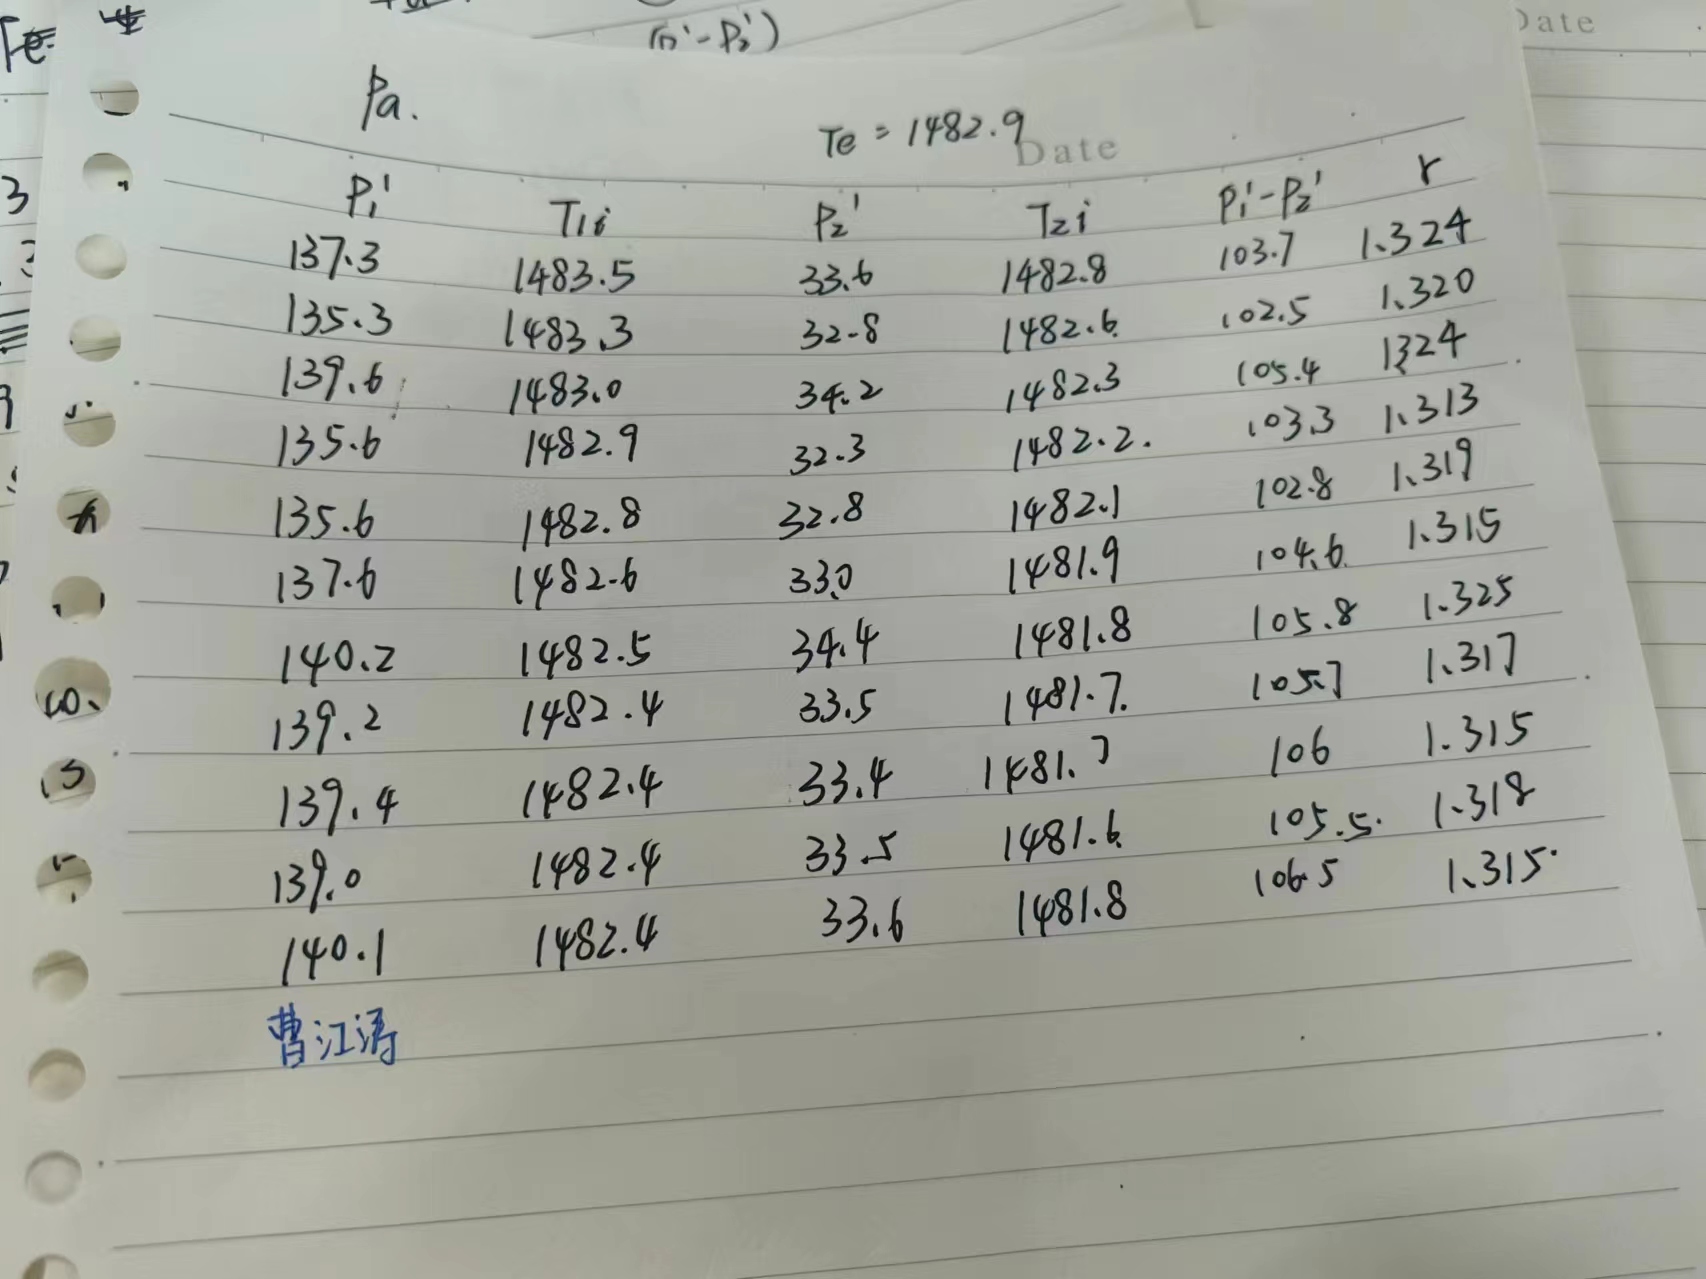 (P₁'-P₂')
Date
Te
Pa.
Te = 1482.9
Date
P₁' T₁i P₂' T₂i P₁'-P₂' r
137.3 1483.5 33.6 1482.8 103.7 1.324
135.3 1483.3 32.8 1482.6 102.5 1.320
139.6 1483.0 34.2 1482.3 105.4 1324
135.6 1482.9 32.3 1482.2. 103.3 1.313
135.6 1482.8 32.8 1482.1 102.8 1.319
137.6 1482.6 33.0 1481.9 104.6 1.315
140.2 1482.5 34.4 1481.8 105.8 1.325
139.2 1482.4 33.5 1481.7. 105.7 1.317
139.4 1482.4 33.4 1481.7 106 1.315
139.0 1482.4 33.5 1481.6 105.5. 1.318
140.1 1482.4 33.6 1481.8 106.5 1.315.
曹江涛